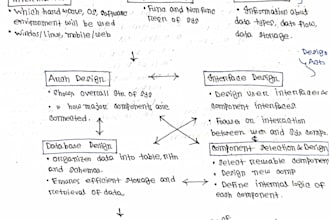 • Which hardware, OS, software
environment will be used
• Windws/Linux, mobile/web
• Func and Non Func
reqn of sys
• Information about
data types, data flow,
data storage.
Design
Acts
Arch Design
• Shows overall str of sys
• how major components are
connected.
Interface Design
• Design user interfaces &
component interfaces
• Focus on interaction
between user and sys comp.
Database Design
• Organizes data into table,
and schemas.
• Ensures efficient storage and
retrieval of data.
Component Selection & Design
• Select reusable component
• Design new comp
• Define internal logic of
each component.
of